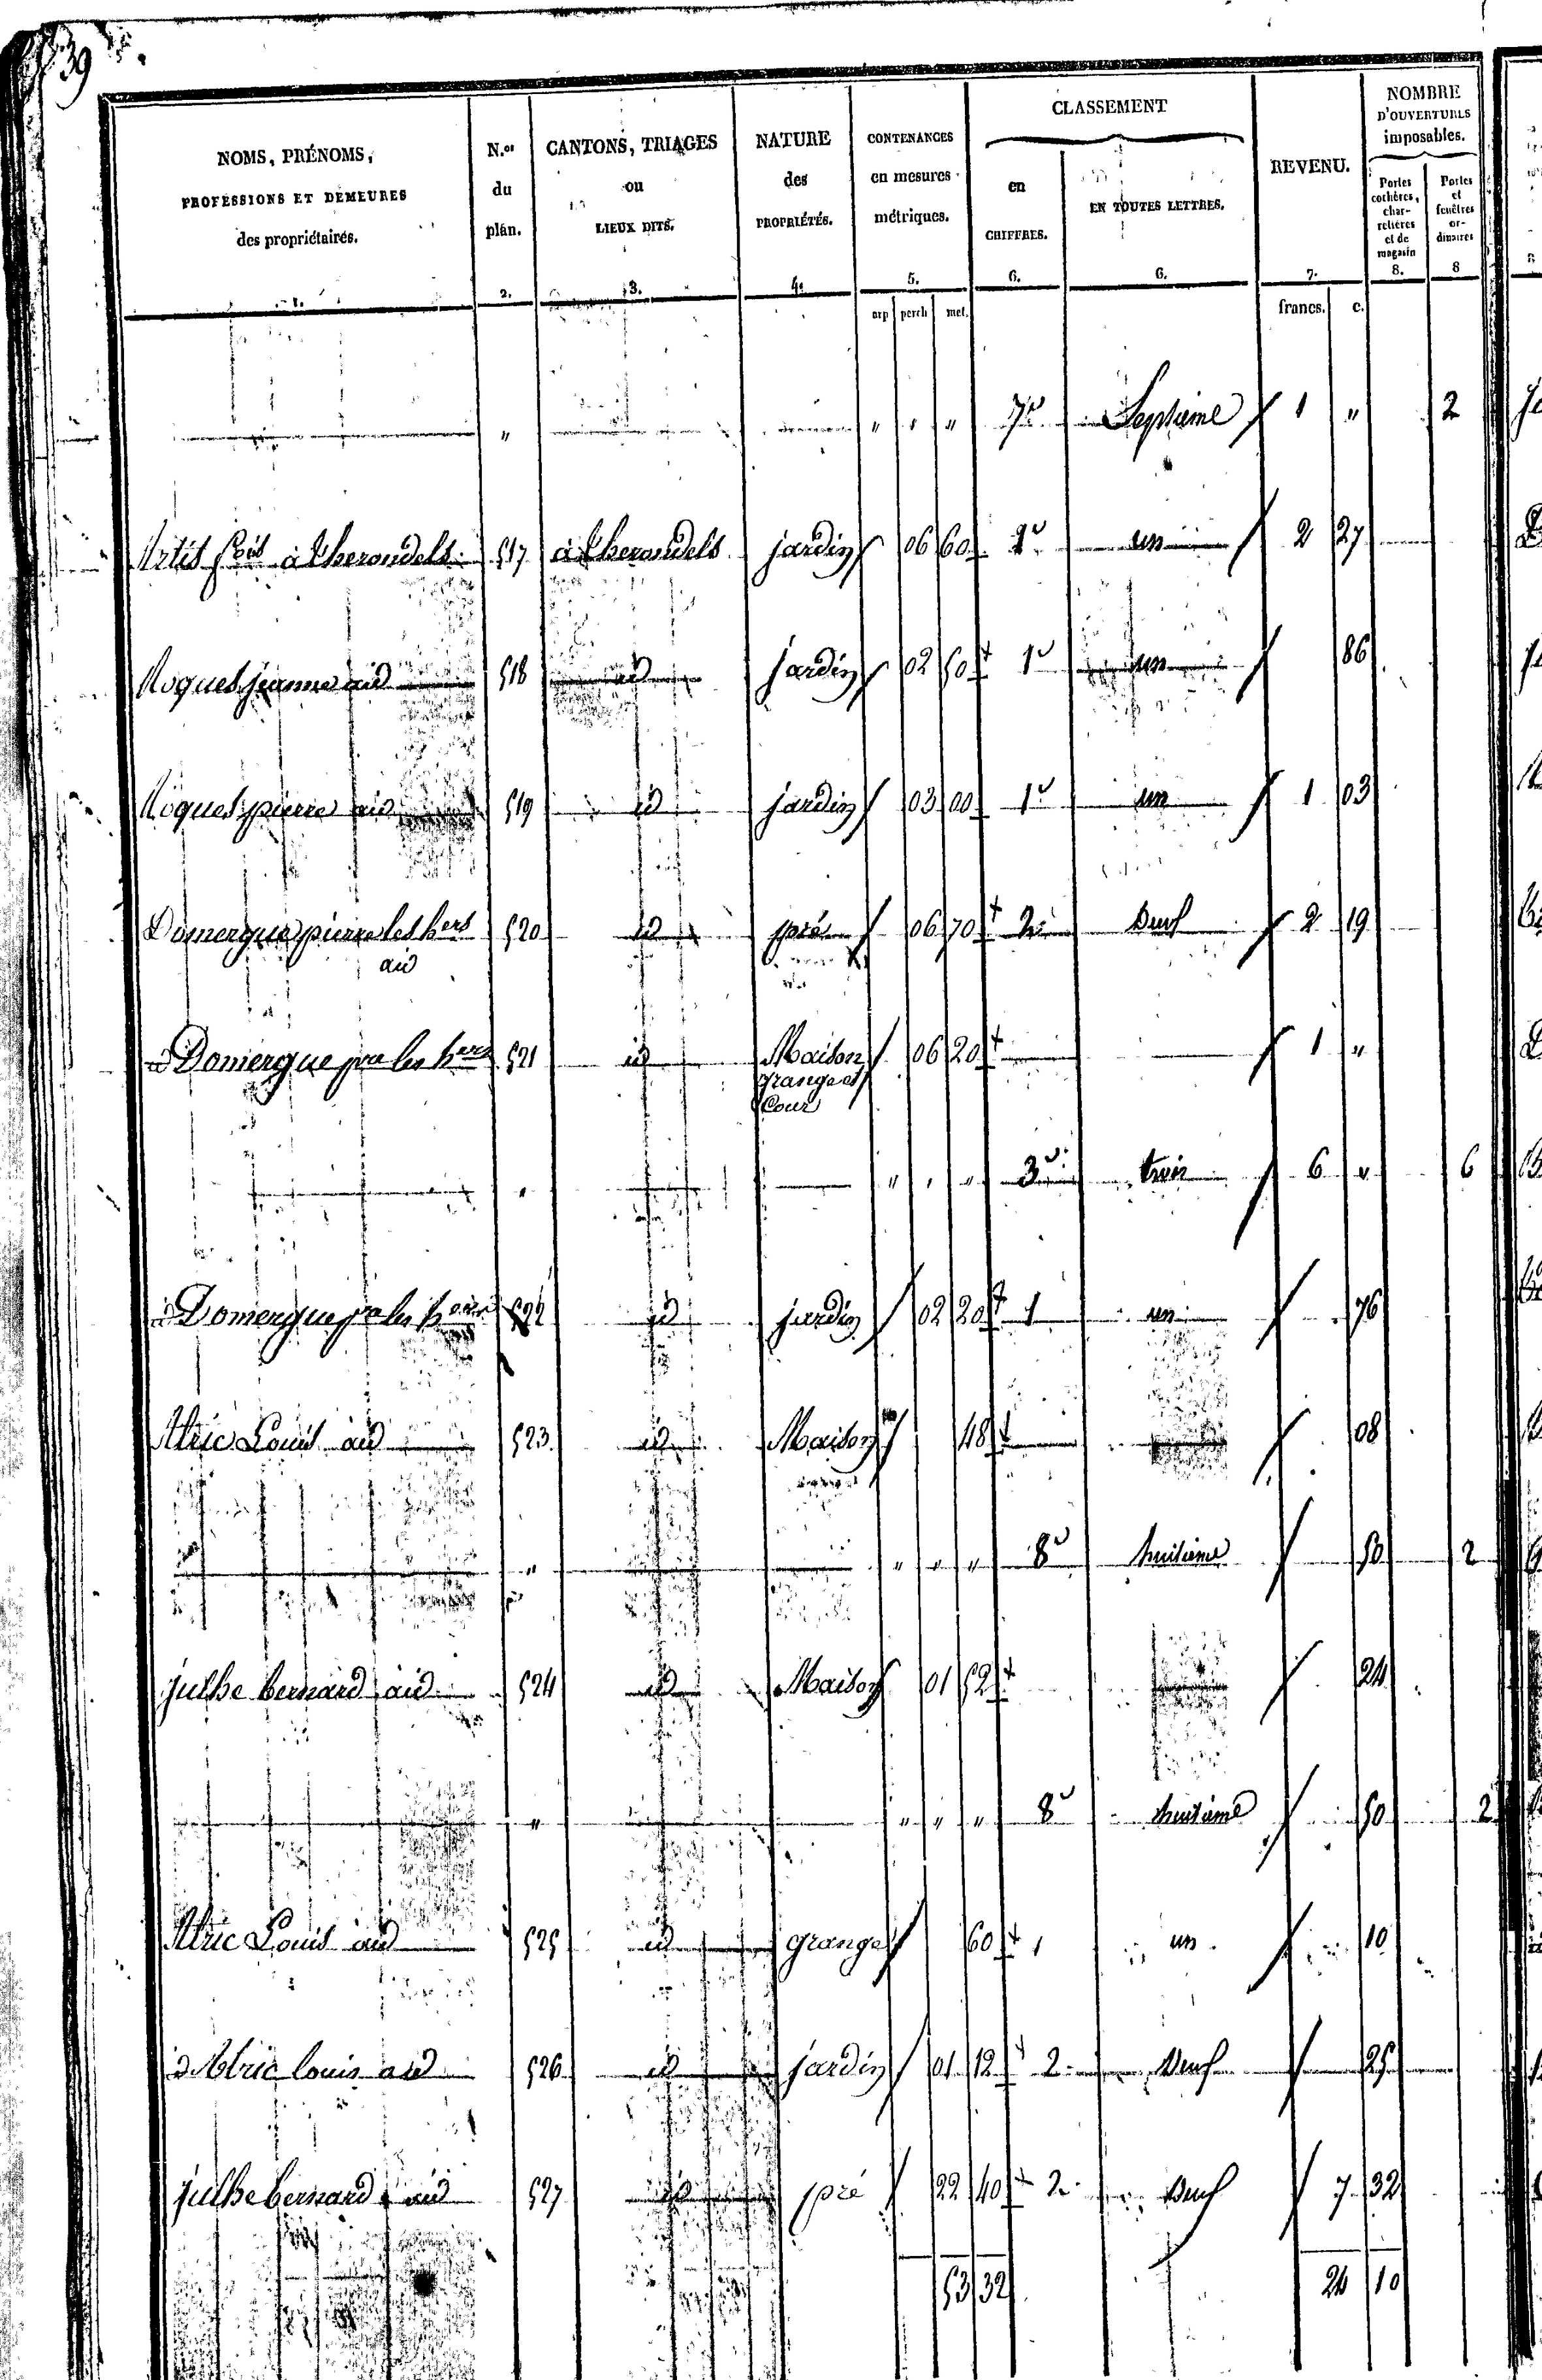 39
NOMS, PRÉNOMS,
PROFESSIONS ET DEMEURES
des propriétaires.
1.
N.os
du
plan.
2.
CANTONS, TRIAGES
ou
LIEUX DITS.
3.
NATURE
des
PROPRIÉTÉS.
4.
CONTENANCES
en mesures
métriques.
5.
arp perch met.
CLASSEMENT
en
CHIFFRES.
6.
EN TOUTES LETTRES.
6.
REVENU.
7.
francs. c.
NOMBRE
D'OUVERTURES
imposables.
Portes
cochères,
char-
retières
et de
magasin
8.
Portes
et
fenêtres
or-
dinaires
8
" " " " 7e Septieme 1 " 2
à Cherondels 517 à Cherondels jardin 06 60 1e un 2 27
Roques jeanne aid 518 id jardin 02 50 1e un 86
Roques pierre aid 519 id jardin 03 00 1e un 1 03
Domergue pierre les hers 520 id pré 06 70 2e Deux 2 19
aid
Domergue pre les hers 521 id Maison 06 20 1 "
grange et
Cour
" " " " 3e trois 6 " 6
Domergue pre les hers 522 id jardin 02 20 1 un 76
Alric Louis aid 523 id Maison 48 08
" " " " 8e huitieme 50 2
julhe bernard aid 524 id Maison 01 52 24
" " " " 8e huitieme 50 2
Alric Louis aid 525 id grange 60 1 un 10
Alric louis aid 526 id jardin 01 12 2 Deux 25
julhe bernard aid 527 id pré 22 40 2 Deux 7 32
53 32 10